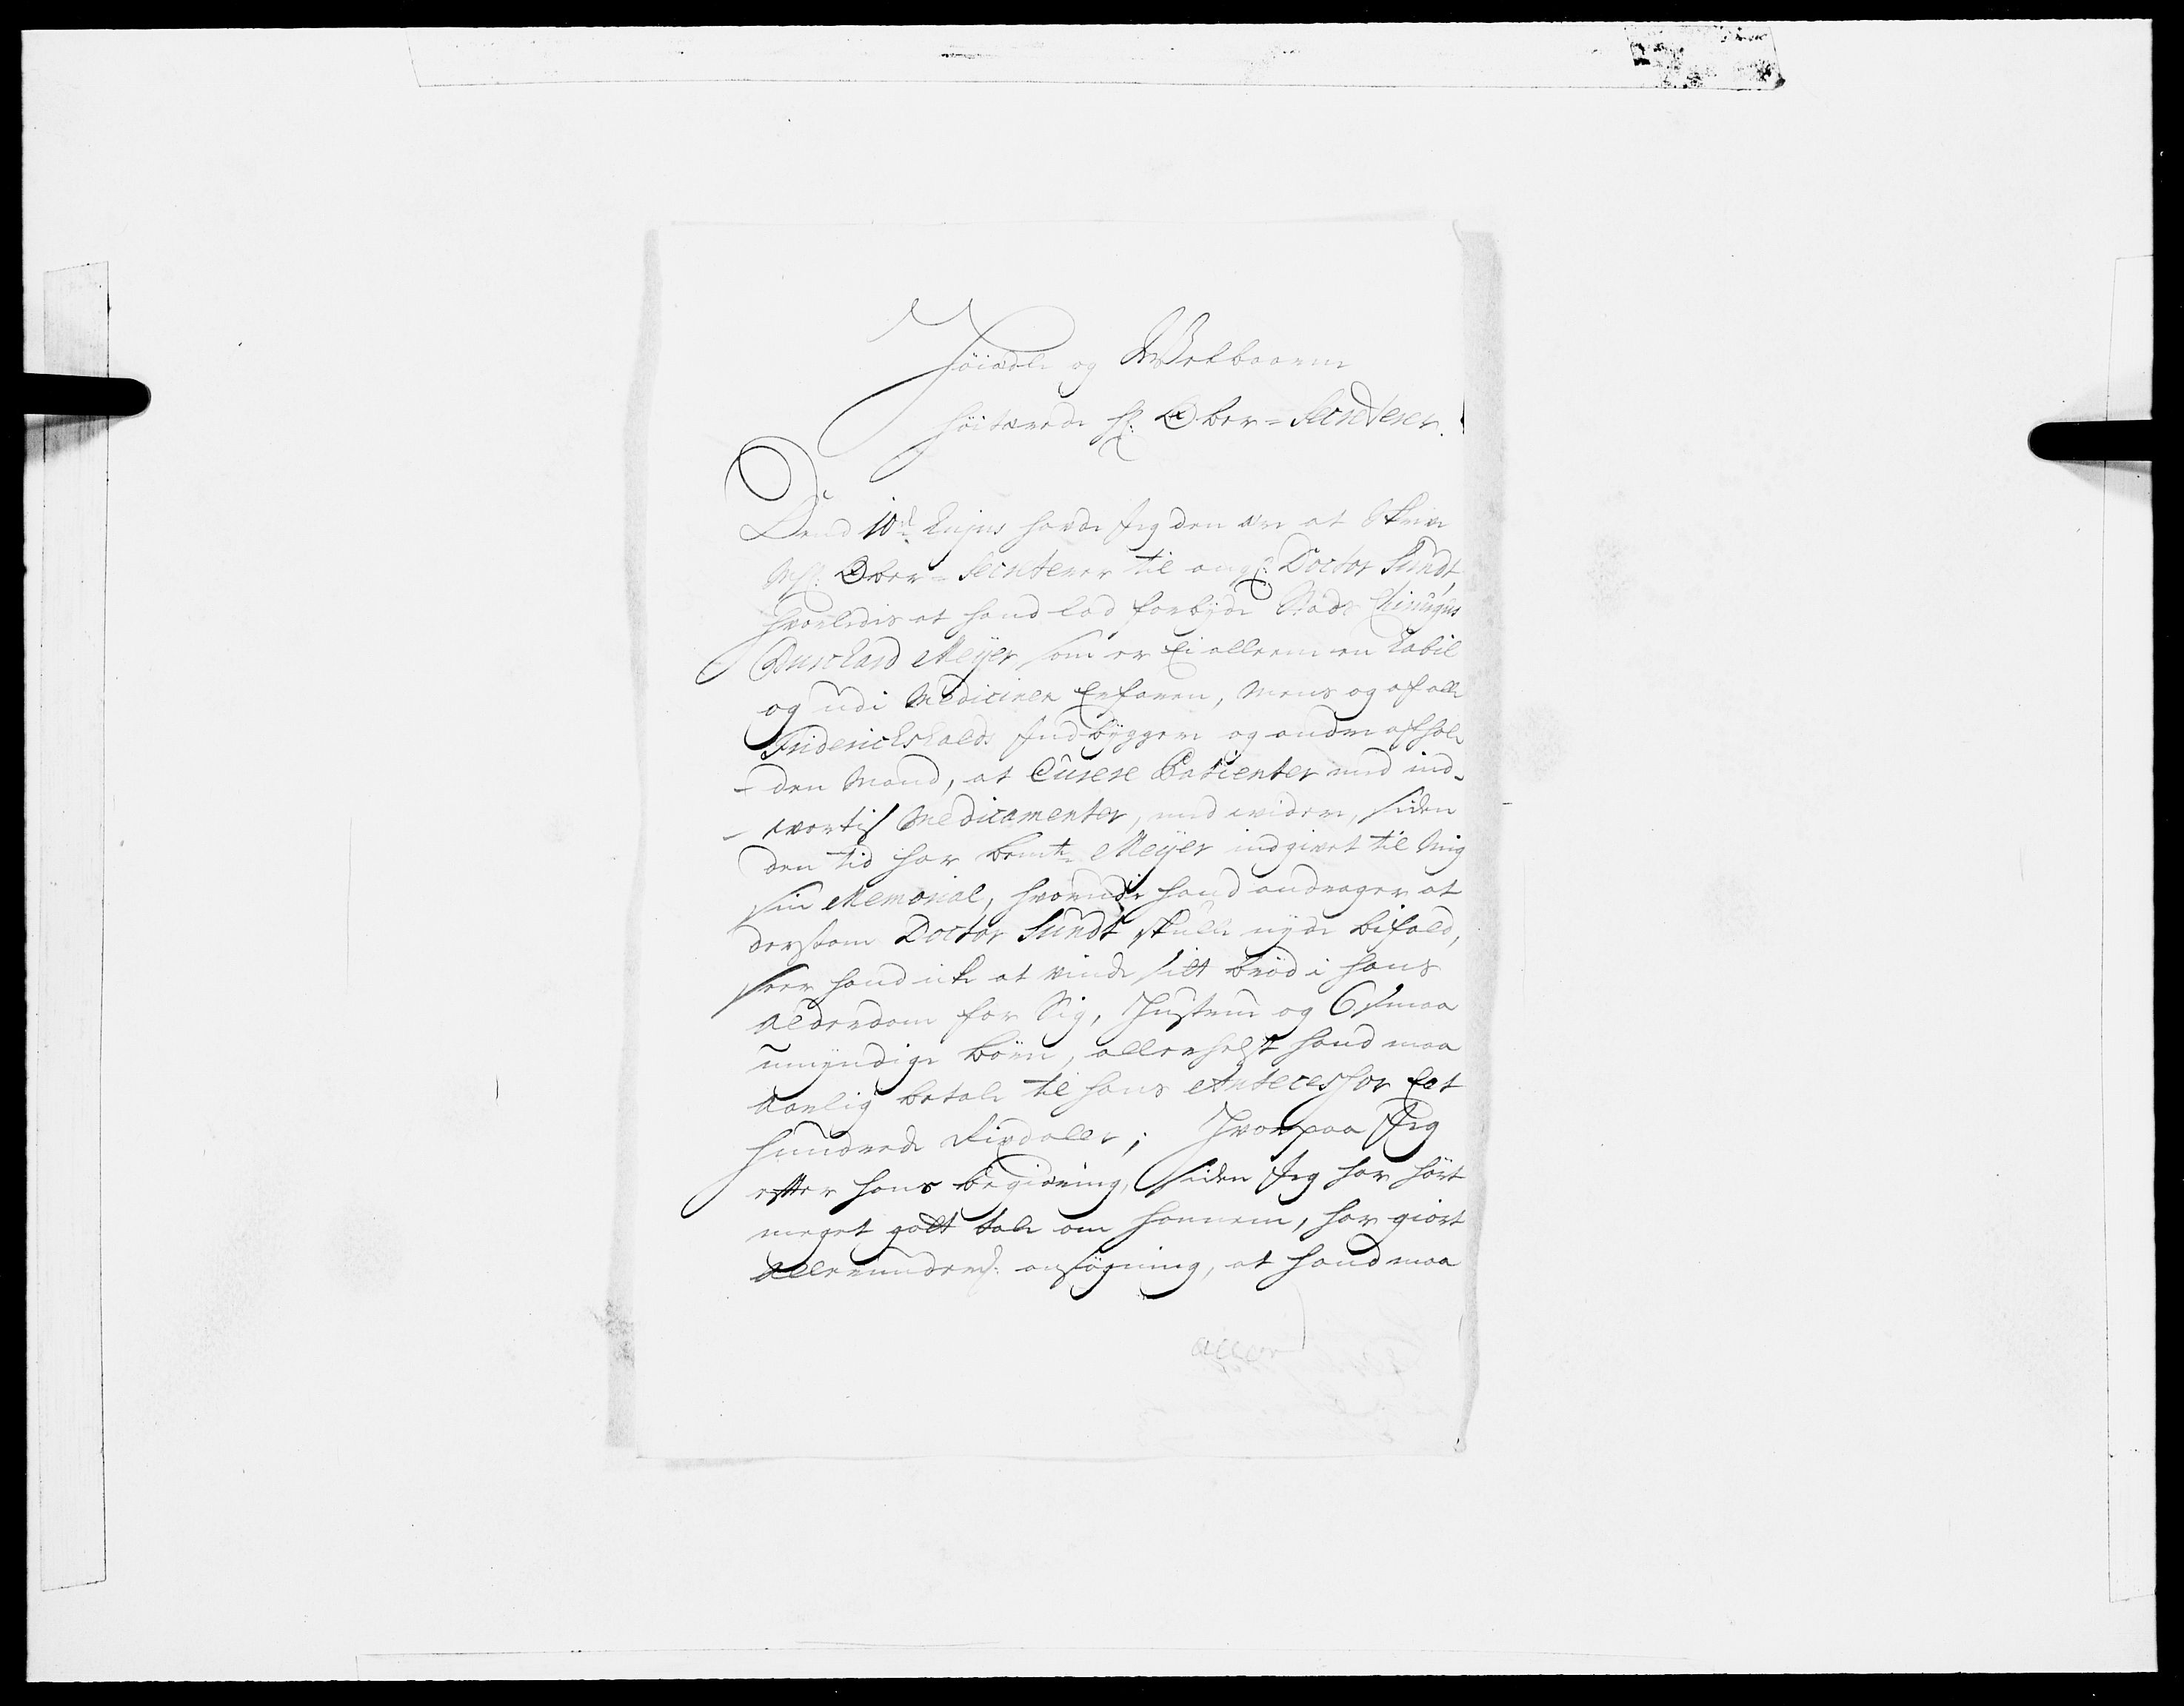 Høiædle og Welbaarne
Høitærede Hr: Ober-Secreterer.
Dend 10de hujus hafde Jeg den ære at Skrive
Hr: Ober-Secreterer til ang: Doctor Sundt,
hvorledis at hand lod forbyde Stads Chirurgus
Burchard Meÿer, som er Ei alleene en habil
og udi Medicinen Erfaren, mens og af alle
Friderichshalds Indbyggere og andre afhol¬
den Mand, at Curere Patienter med ind¬
vortis Medicamenter, med videre, siden
den tid har bemte Meÿer indgivet til Mig
sin Memorial, hvorudi hand andrager at
dersom Doctor Sundt skulle nyde bifald,
seer hand icke at vinde sitt brød i hans
Alderdom for Sig, Hustrue og 6 smaa
umyndige børn, allerhelst hand maa
aarlig betale til hans Antecessor Eet
hundrede Rixdaler; Hvorpaa Jeg
efter hans begiering, siden Jeg har hørt
meget godt tale om hannem, har giort
allerunders: ansøgning, at hand maa
aller